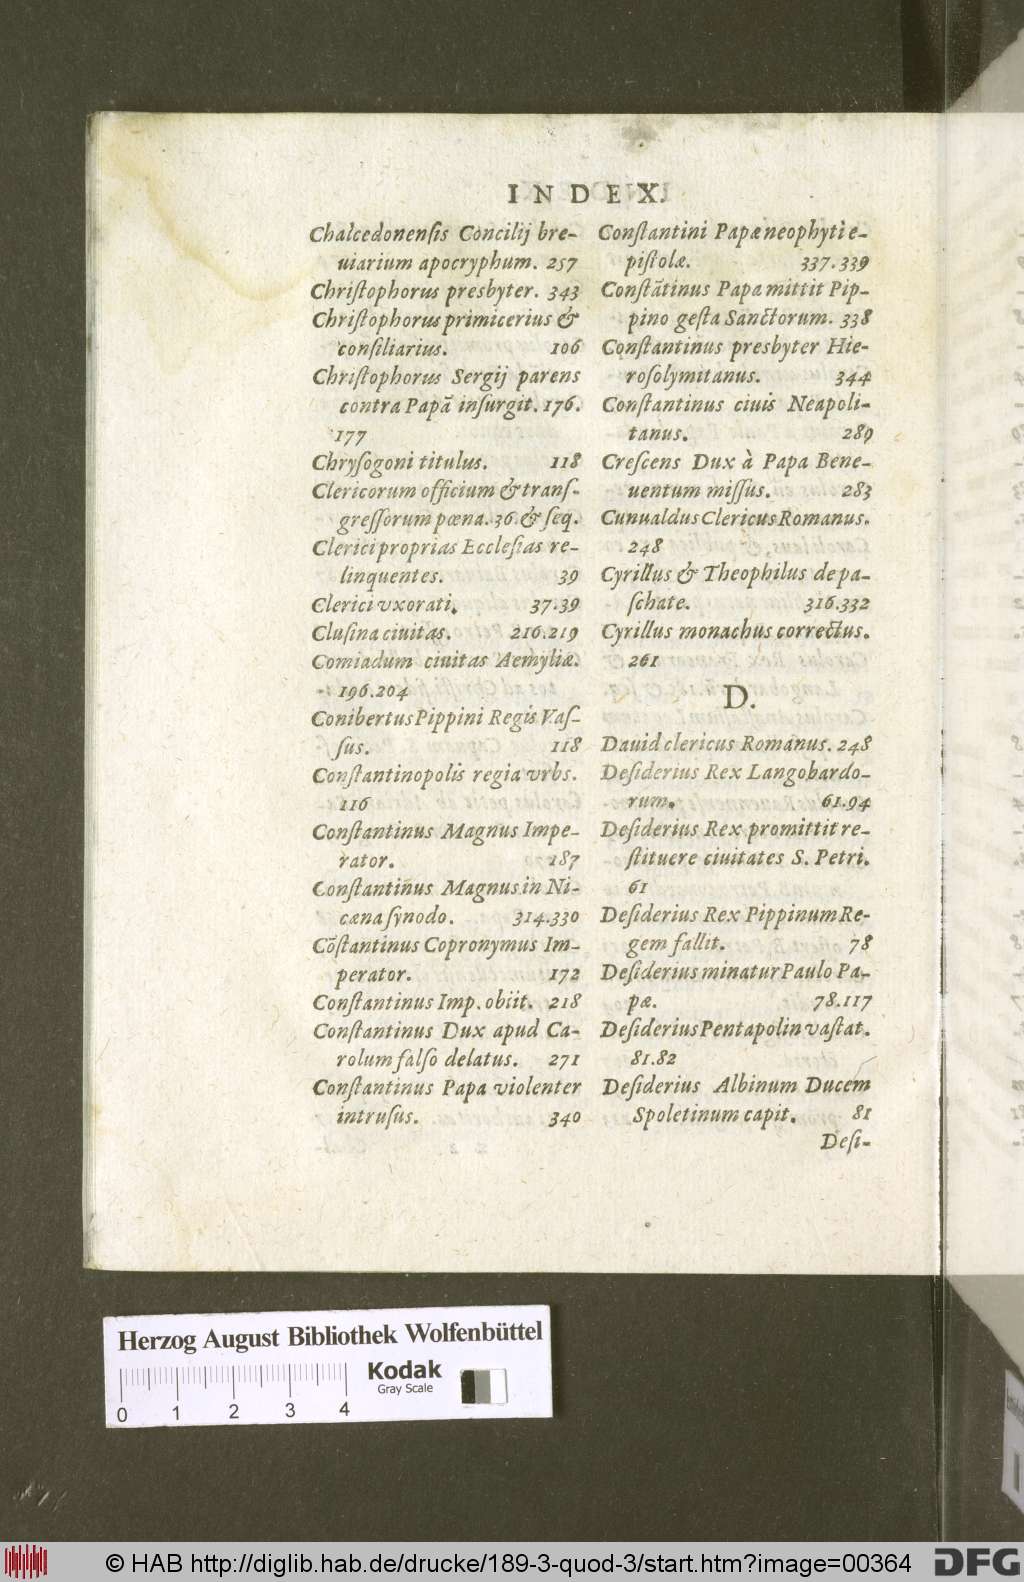 INDEX.
Chalcedonensis Concilij bre-
uiarium apocryphum. 257
Christophorus presbyter. 343
Christophorus primicerius &
consiliarius. 106
Christophorus Sergij parens
contra Papã insurgit. 176.
177
Chrysogoni titulus. 118
Clericorum officium & trans-
gressorum pœna. 36. & seq.
Clerici proprias Ecclesias re-
linquentes. 39
Clerici vxorati. 37.39
Clusina ciuitas. 216.219
Comiadum ciuitas Aemyliæ.
196.204
Conibertus Pippini Regis Vas-
sus. 118
Constantinopolis regia vrbs.
116
Constantinus Magnus Impe-
rator. 187
Constantinus Magnus in Ni-
cæna synodo. 314.330
Cõstantinus Copronymus Im-
perator. 172
Constantinus Imp. obiit. 218
Constantinus Dux apud Ca-
rolum falso delatus. 271
Constantinus Papa violenter
intrusus. 340
Constantini Papæ neophyti e-
pistolæ. 337.339
Constãtinus Papa mittit Pip-
pino gesta Sanctorum. 338
Constantinus presbyter Hie-
rosolymitanus. 344
Constantinus ciuis Neapoli-
tanus. 289
Crescens Dux à Papa Bene-
uentum missus. 283
Cunualdus Clericus Romanus.
248
Cyrillus & Theophilus de pa-
schate. 316.332
Cyrillus monachus correctus.
261
D.
Dauid clericus Romanus. 248
Desiderius Rex Langobardo-
rum. 61.94
Desiderius Rex promittit re-
stituere ciuitates S. Petri.
61
Desiderius Rex Pippinum Re-
gem fallit. 78
Desiderius minatur Paulo Pa-
pæ. 78.117
Desiderius Pentapolin vastat.
81.82
Desiderius Albinum Ducem
Spoletinum capit. 81
Desi-
Herzog August Bibliothek Wolfenbüttel
Kodak
Gray Scale
0 1 2 3 4
© HAB http://diglib.hab.de/drucke/189-3-quod-3/start.htm?image=00364
DFG